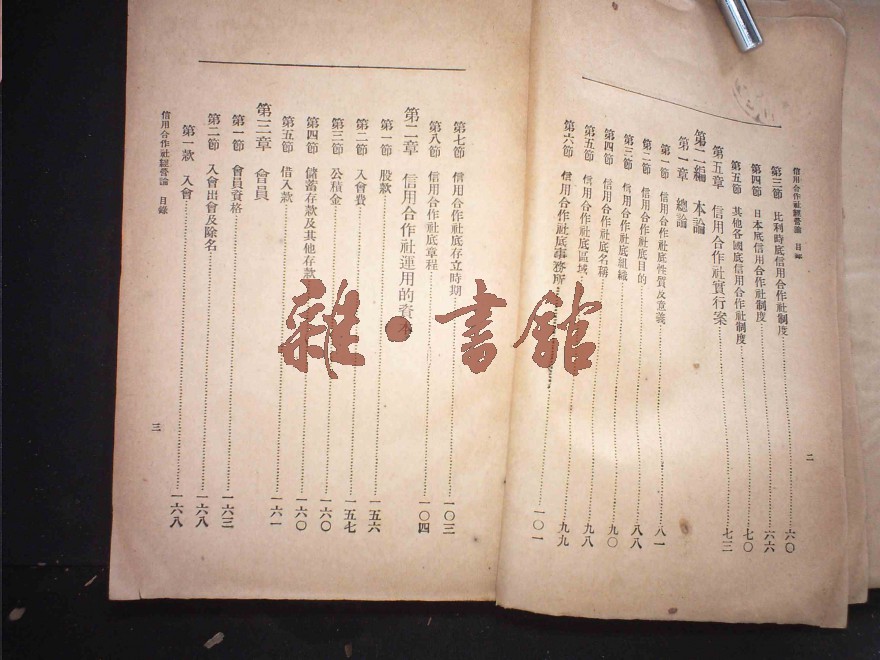 信用合作社經營論 目錄
第三節 比利時底信用合作社制度 六〇
第四節 日本底信用合作社制度 六六
第五節 其他各國底信用合作社制度 七〇
第五章 信用合作社實行案 七三
第二編 本論
第一章 總論
第一節 信用合作社底性質及意義 八一
第二節 信用合作社底目的 八八
第三節 信用合作社底組織 八八
第四節 信用合作社底名稱 九〇
第五節 信用合作社底區域 九八
第六節 信用合作社底事務所 九九
一〇一
二
第七節 信用合作社底存立時期 一〇三
第八節 信用合作社底章程 一〇四
第二章 信用合作社運用的資本
第一節 股款 一五六
第二節 入會費 一五七
第三節 公積金 一六〇
第四節 儲蓄存款及其他存款 一六〇
第五節 借入款 一六一
第三章 會員
第一節 會員資格 一六三
第二節 入會出會及除名 一六八
第一款 入會 一六八
信用合作社經營論 目錄
三
雜·書館